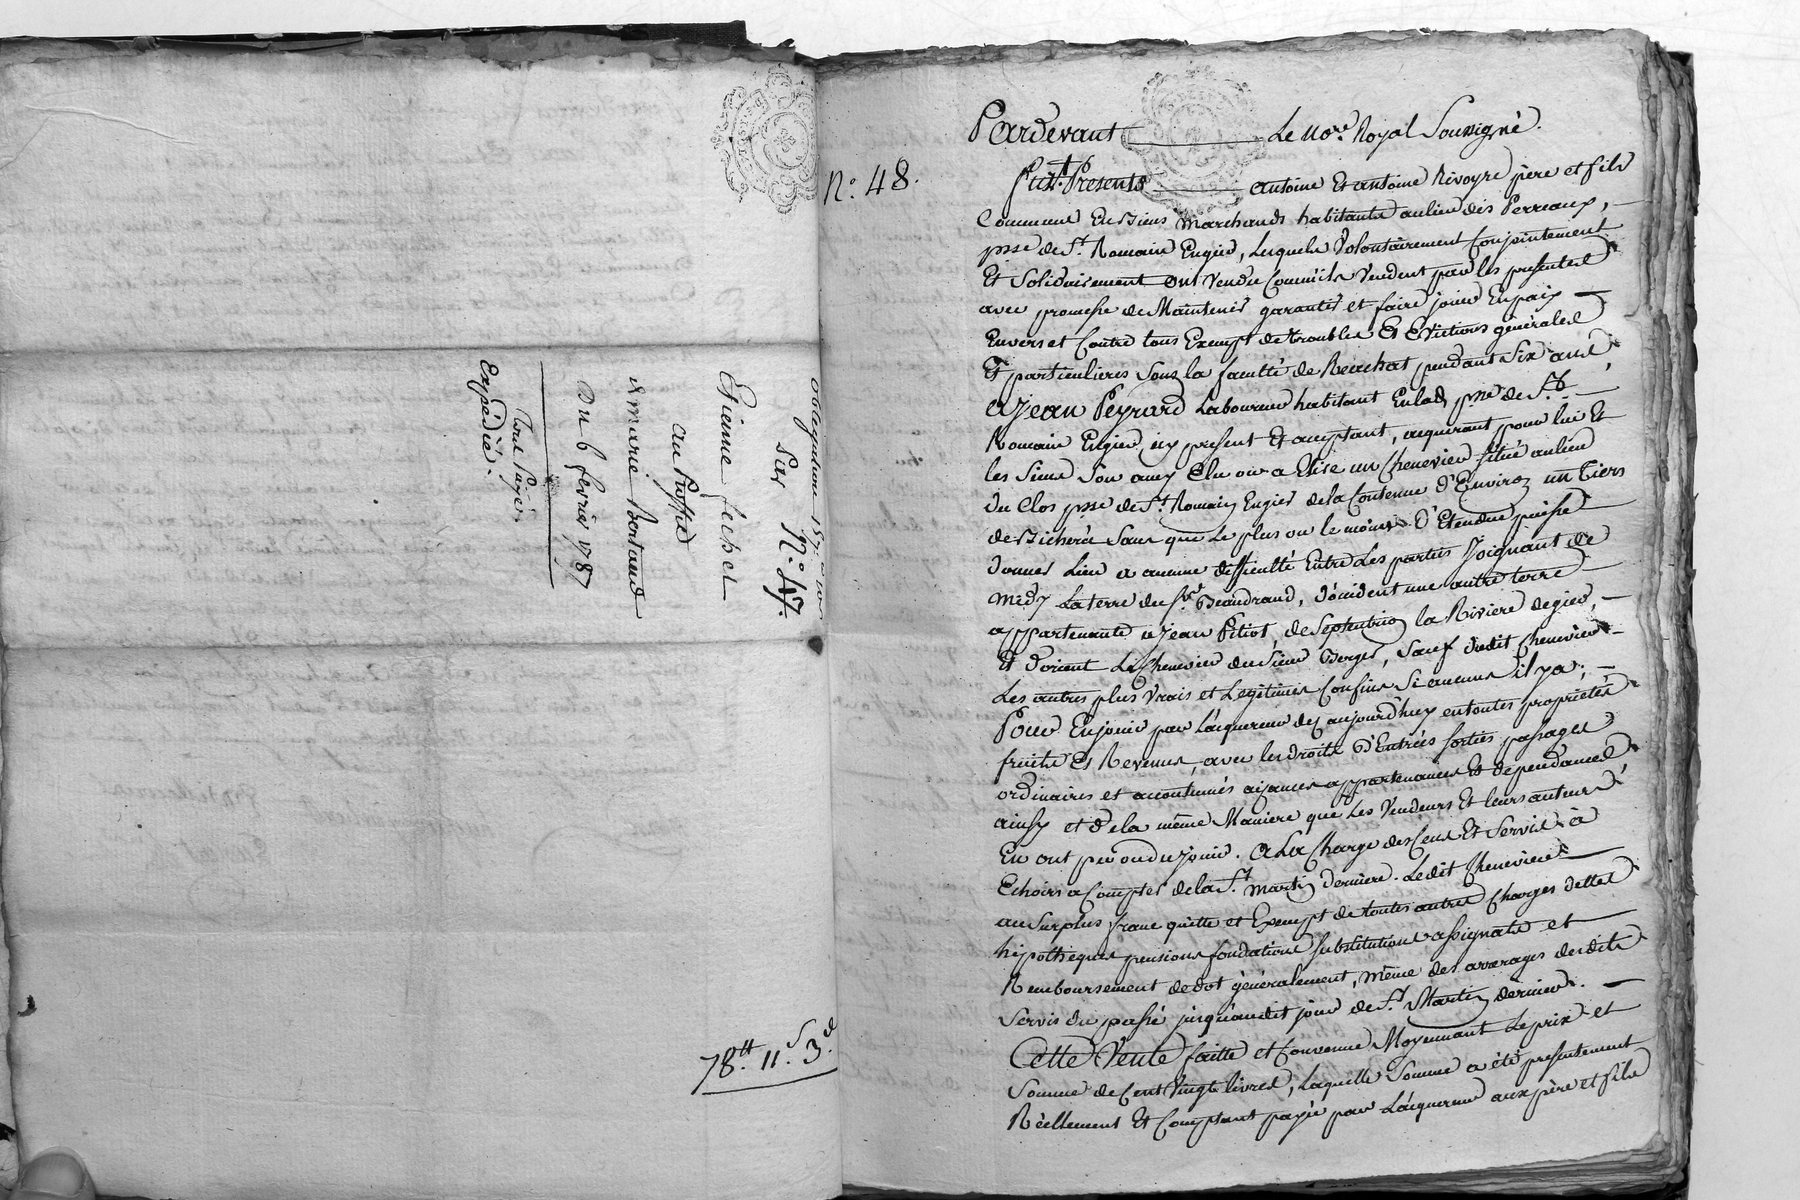 Obligation 157 ₶
Per N.o 47.
Etienne Jechet
au Proffit
de marie Bertaud
Du 6 fevrier 1787
Tout Payé
Expédié.
78.₶ 11.s 3.d
N.o 48.
Pardevant Le No.re Royal Soussigné.
furt Presents antoine Et antoine Rivoyre père et fils
Commune En Biens marchands habitants au lieu des Perreaux,
psse de S.t Romain Engier, Lesquels Volontairement Conjointement
Et Solidairement ont vendu Comm'ils vendent par les presentes
avec promesse de Maintenir garantir et faire jouir En paix
Envers et Contre tous Exempt de troubles Et Evictions générales
Et particulieres sous la faculté de Reachat pendant six ans,
a Jean Peyrard Laboureur habitant En lad. psse de S.t
Romain Engier, icy present Et acceptant, acquerant pour lui Et
les Siens Son amy Elu ou a Elire un Chenevier situé au lieu
du Clos psse de S.t Romain Engier de la Contenue d'Environ un tiers
de Bicherée Sans que Le plus ou le moins d'Etendue puisse
donner Lieu a aucune difficulté Entre Les parties Joignant de
midy La terre du S.r Beaudrand, d'occident une autre terre
appartenante a Jean Pitiot, de Septentrion la Riviere de gier,
Et d'orient Le Chenevier du Sieur Berger, Sauf dudit Chenevier
Les autres plus vrais et Legitimes Confins Si aucuns il y a;
Pour En jouir par L'acquereur dez aujourd'huy en toutes proprietés
fruits Et Revenus, avec les droits d'Entrées sorties passages
ordinaires et accoutumés aizances appartenances Et dependances
ainsy et de la même Maniere que Les Vendeurs Et leurs auteurs
En ont peu ou du jouir. a La Charge des Cens Et Servis à
Echoirs a Compter de la S.t martin derniere. Ledit Chenevier
au Surplus franc quitte et Exempt de toutes autres Charges dettes
hipotheques pensions fondations substitutions assignats et
Remboursement de dot généralement, même des arrerages desdits
Servis du passé jusqu'audit jour de S.t Martin dernier.
Cette Vente faitte et Convenue Moyennant Le prix et
Somme de Cent Vingt livres, Laquelle Somme a été presentement
Réellement Et Comptant payée par L'acquereur aux père et fils